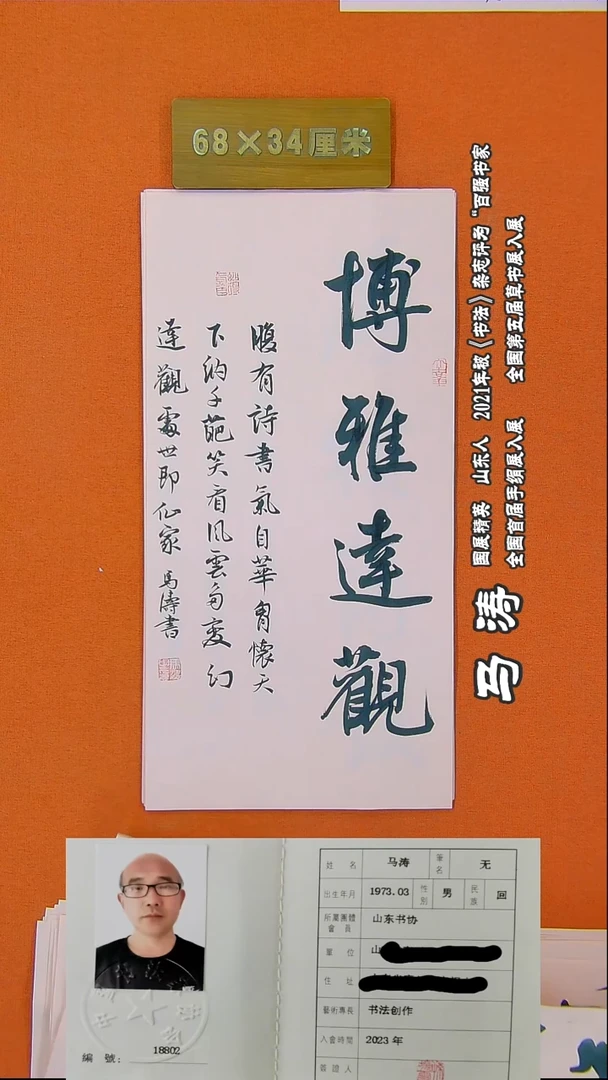 68×34厘米
博雅達觀
腹有詩書氣自華胷懷天
下納千葩笑看風雲多变幻
達觀處世即仙家 馬濤書
马涛
国展精英 山东人 2021年被《书法》杂志评为“百强书家
全国首届手绢展入展 全国第五届草书展入展
姓名 马涛 筆名 无
出生年月 1973.03 性別 男 民族 回
所屬團體會員 山东书协
單位 山
住址
藝術專長 书法创作
入會時間 2023 年
簽證人
編號: 18802